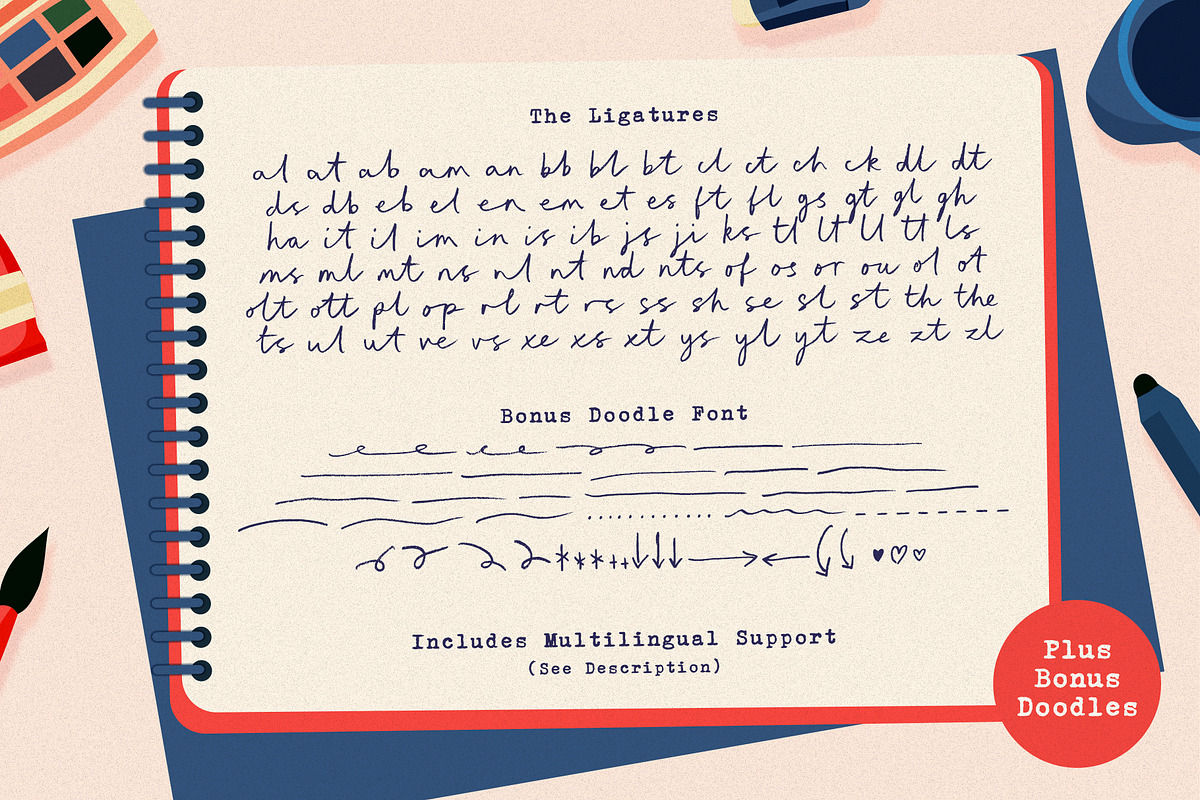 The Ligatures
al at ab am an bb bl bt cl ct ch ck dl dt
ds db eb el en em et es ft fl gs gt gl gh
ha it il im in is ib js ji ks tl lt ll tt ls
ms ml mt ns nl nt nd nts of os or ou ol ot
olt ott pl op rl rt rs ss sh se sl st th the
ts ul ut ve vs xe xs xt ys yl yt ze zt zl
Bonus Doodle Font
Includes Multilingual Support
(See Description)
Plus
Bonus
Doodles